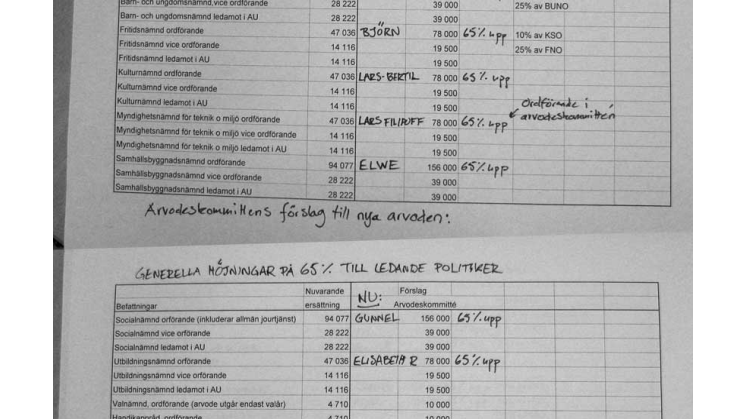 Barn- och ungdomsnämnd, vice ordförande 28 222 39 000 25% av BUNO
Barn- och ungdomsnämnd ledamot i AU 28 222 39 000
Fritidsnämnd ordförande 47 036 BJÖRN 78 000 65% upp 10% av KSO
Fritidsnämnd vice ordförande 14 116 19 500 25% av FNO
Fritidsnämnd ledamot i AU 14 116 19 500
Kulturnämnd ordförande 47 036 LARS-BERTIL 78 000 65% upp
Kulturnämnd vice ordförande 14 116 19 500
Kulturnämnd ledamot i AU 14 116 19 500 Ordförande i
Myndighetsnämnd för teknik o miljö ordförande 47 036 LARS FILIPOFF 78 000 65% upp arvodeskommittén
Myndighetsnämnd för teknik o miljö vice ordförande 14 116 19 500
Myndighetsnämnd för teknik o miljö ledamot i AU 14 116 19 500
Samhällsbyggnadsnämnd ordförande 94 077 ELWE 156 000 65% upp
Samhällsbyggnadsnämnd vice ordförande 28 222 39 000
Samhällsbyggnadsnämnd ledamot i AU 28 222 39 000
Arvodeskommittens förslag till nya arvoden:
GENERELLA HÖJNINGAR PÅ 65% TILL LEDANDE POLITIKER
Nuvarande Förslag
Befattningar ersättning NU: Arvodeskommitté
Socialnämnd orförande (inkluderar allmän jourtjänst) 94 077 GUNNEL 156 000 65% upp
Socialnämnd vice orförande 28 222 39 000
Socialnämnd ledamot i AU 28 222 39 000
Utbildningsnämnd orförande 47 036 ELISABETH R 78 000 65% upp
Utbildningsnämnd vice orförande 14 116 19 500
Utbildningsnämnd ledamot i AU 14 116 19 500
Valnämnd, orförande (arvode utgår endast valår) 4 710 10 000
Handikappråd, ordförande 4 710 10 000